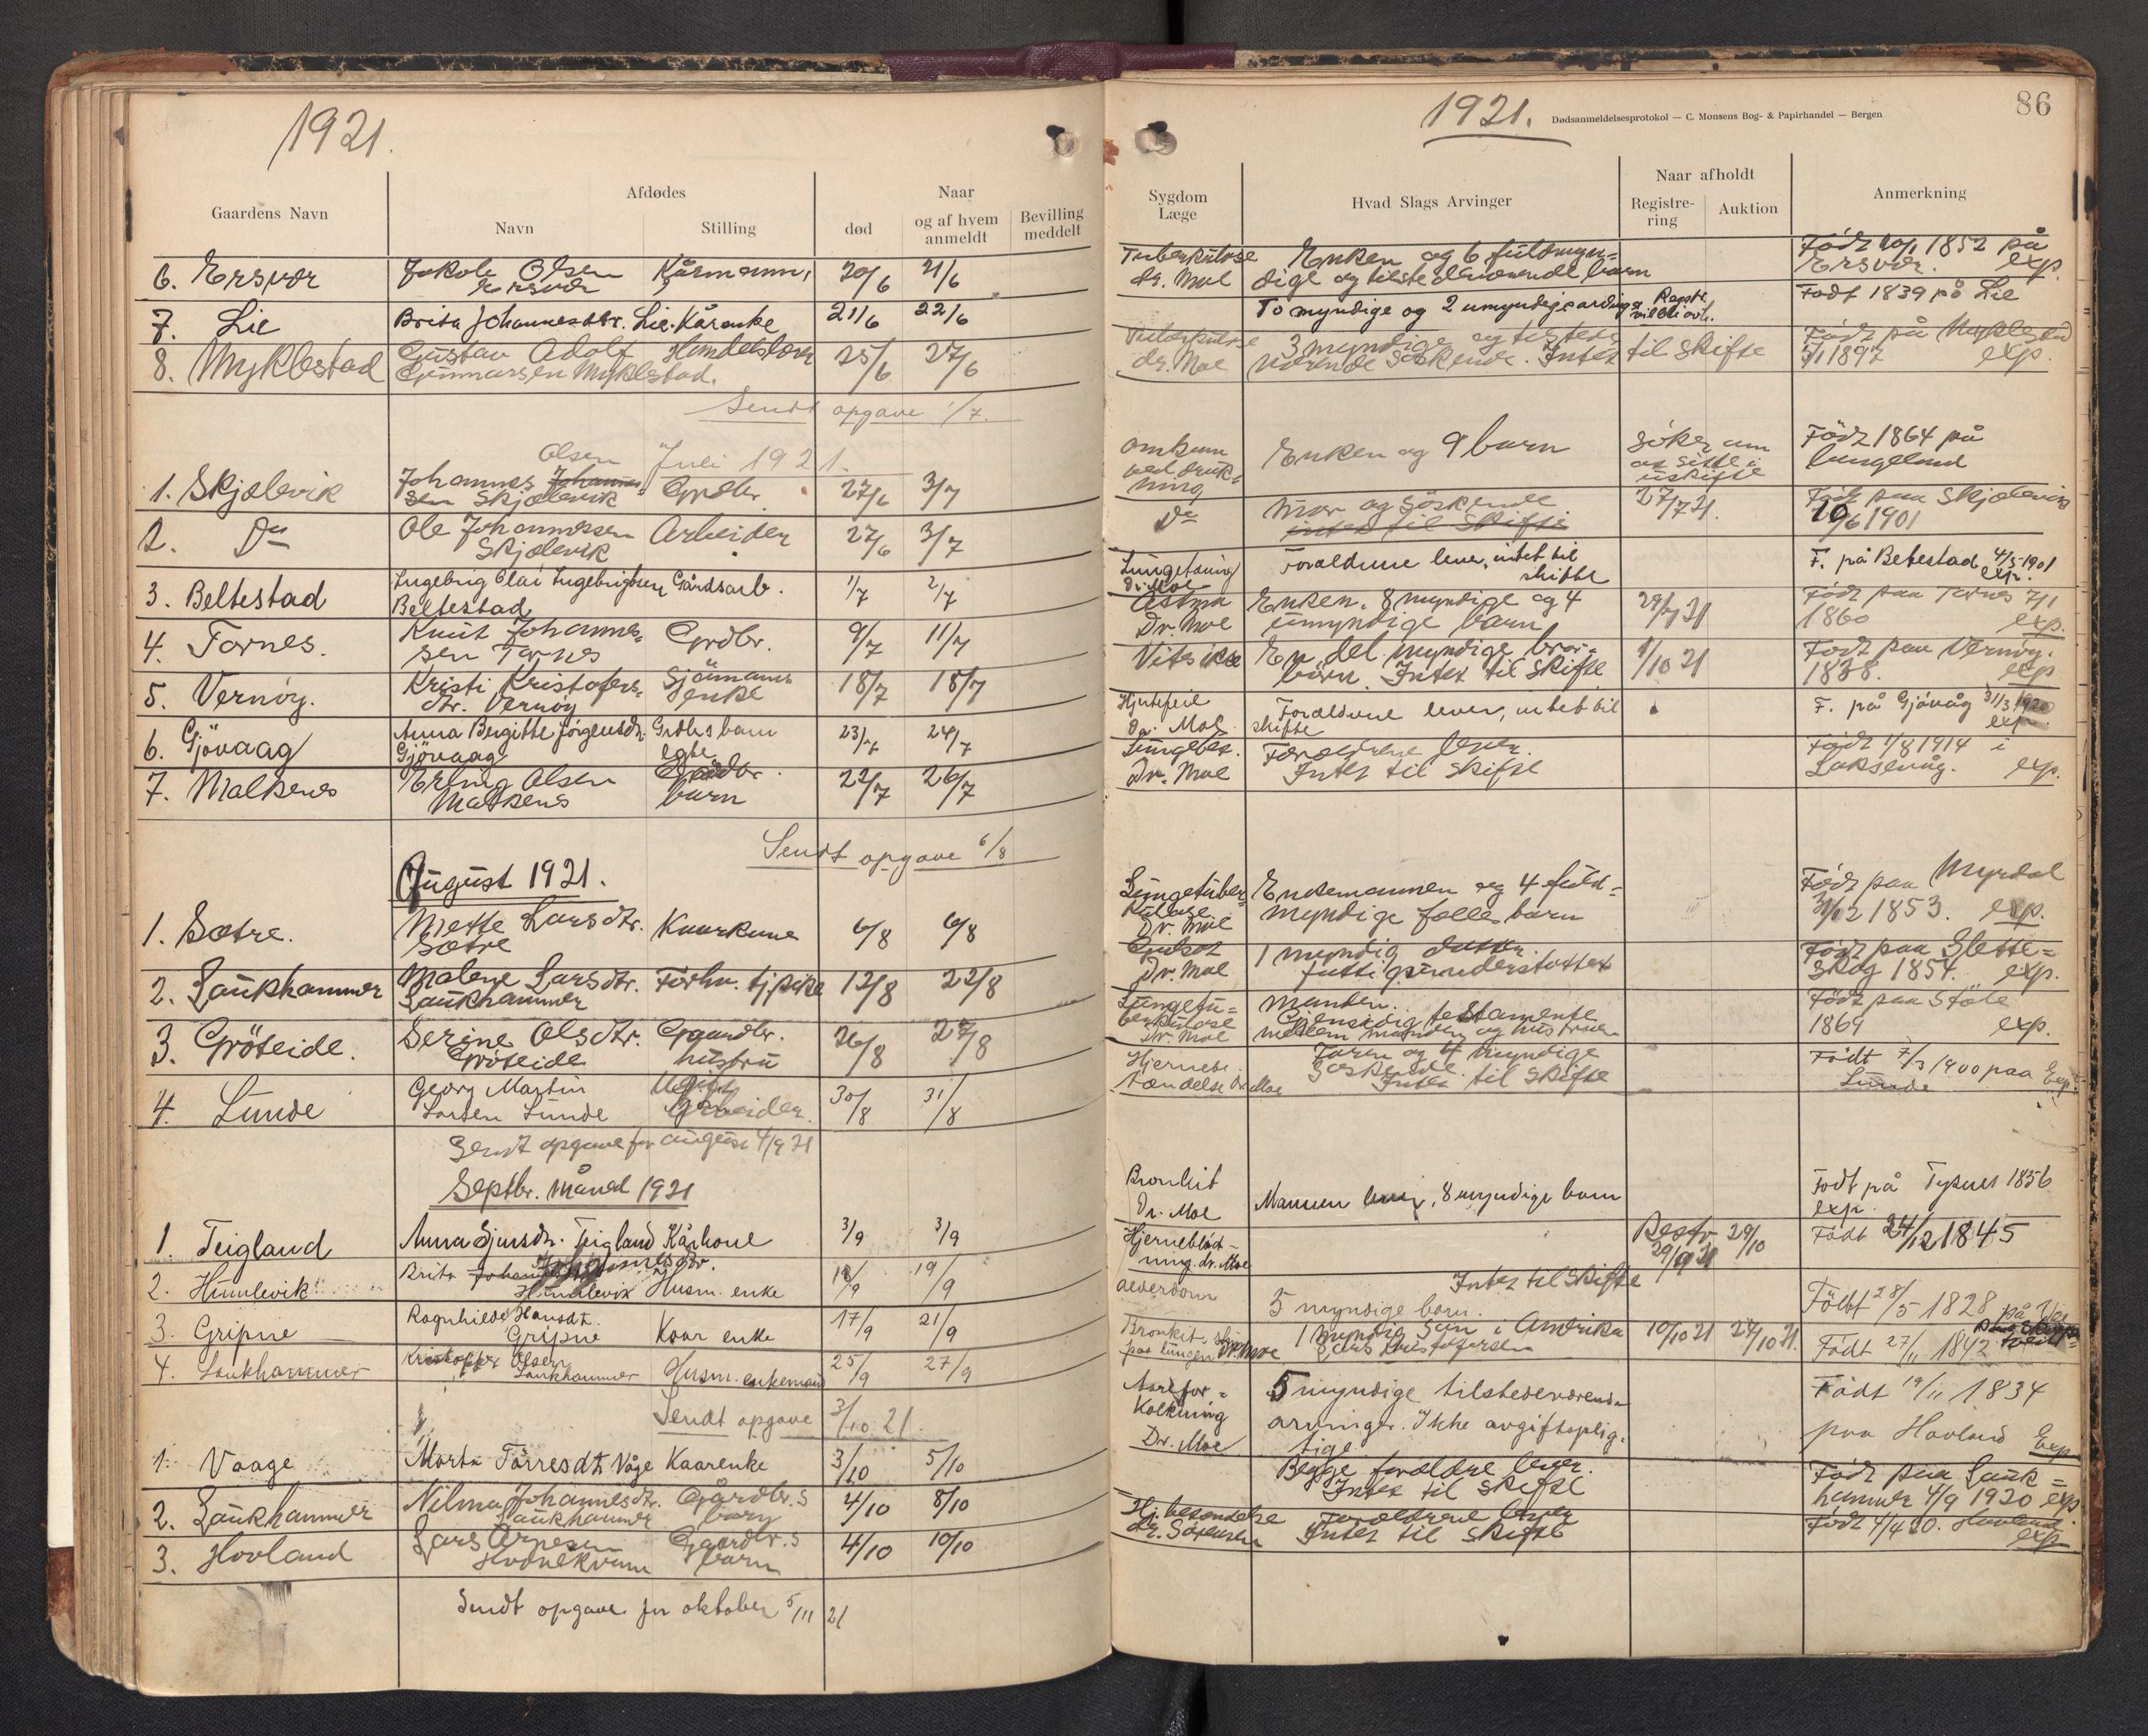 1921.
Gaardens Navn
Afdødes
Navn
Stilling
Naar
død
og af hvem anmeldt
Bevilling meddelt
6. Ersvær
Jakob Olsen
Ersvær
Kårmann
20/6
21/6
7. Lie
Brita Johannesdtr. Lie.
Kårenke
21/6
22/6
8. Myklestad
Gustav Adolf
Gunnarsen Myklestad.
25/6
27/6
Sendt opgave 1/7.
Juli 1921.
1. Skjælevik
Olsen
Johannes Johannes
sen Skjælevik
Grdbr.
27/6
3/7
2. Do
Ole Johannessen
Skjælevik
Arbeider
27/6
3/7
3. Beltestad
Ingebrig Olai Ingebrigtsen
Beltestad
Gårdsarb.
1/7
2/7
4. Tornes.
Knut Johannes=
sen Tornes
Grdbr.
9/7
11/7
5. Vernöy.
Kristi Kristofers=
dtr. Vernöy
Sjömanns
enke
18/7
18/7
6. Gjövaag
Anna Bergitte Jörgensdtr.
Gjövaag
Grdbrs barn
egte
23/7
24/7
7. Malkenes
Erling Olsen
Malkenes
Grdbr.
barn
22/7
26/7
Sendt opgave 6/8
August 1921.
1. Sætre.
Mette Larsdtr.
Sætre
Kaarkone
6/8
6/8
2. Laukhammer
Malene Larsdtr.
Laukhammer
Forhv. tj.pike
12/8
22/8
3. Gröteide.
Serine Olsdtr.
Gröteide
Gaardbr.
hustru
26/8
27/8
4. Lunde
Georg Martin
Larsen Lunde
Ugift
Arbeider
30/8
31/8
Sendt opgave for august 4/9 21
Septbr. Måned 1921
1. Teigland
Anna Sjursdtr. Teigland
Kårkone
3/9
3/9
2. Humlevik
Brita Johannesdtr.
Humlevik
Husm. enke
18/9
19/9
3. Gripne
Ragnhilde Hansdt.
Gripne
Kaar enke
17/9
21/9
4. Laukhammer
Kristoffer Olsen
Laukhammer
Husm. enkemand
25/9
27/9
Sendt opgave 3/10 21.
1. Vaage
Marta Törresdtr Våge
Kaarenke
3/10
5/10
2. Laukhammer
Nilma Johannesdtr.
Laukhammer
Gårdbr.s
barn
4/10
8/10
3. Hovland
Lars Arnesen
Gaardbr.s
barn
4/10
10/10
Sendt opgave for oktober 5/11 21
1921.
Dødsanmeldelsesprotokol — C. Monsens Bog- & Papirhandel — Bergen
86
Sygdom
Læge
Hvad Slags Arvinger
Naar afholdt
Registrering
Auktion
Anmerkning
Tuberkulose
dr. Moe
Enken og 6 fuldmyn=
dige og tilstedeværende barn
Född 20/1 1852 på
Ersvær. exp.
To myndige og 2 umyndige arvinger
Registr.
vil bli avh.
Född 1839 på Lie
Tuberkulose
dr. Moe
3 myndige og tilstede
værende söskende. Intet til skifte
Född på Myklestad
1897 exp.
Omkom
ved druk=
ning
Enken og 9 barn
Söker om
at sitte i
uskifte
Född 1864 på
Lungeland
Do
Mor og söskende
intet til skifte
27/7 21.
Född paa Skjælevik
10/6 1901
Lungetæring
Dr. Moe
Foraldrene lever, intet til
skifte
F. på Beltestad 4/5-1901
exp.
Astma
Dr. Moe
Enken. 8 myndige og 4
umyndige barn
Född paa Tornes 7/1
1860 exp.
En del myndige bror=
börn. Intet til skifte
1/10 21
Född paa Vernöy.
1838. exp
Hjertefeil
Dr. Moe
Foraldrene lever, intet til
skifte
F. på Gjövåg 31/3 1920
exp.
Lungebet.
Dr. Moe
Foraldrene lever.
Intet til skifte
Född 1/8 1914 i
Laksevåg. exp.
Lungetuber=
kulose
Dr. Moe
Enkemannen og 4 fuld=
myndige felles barn
Född paa Myrdal
31/12 1853. exp.
Dr. Moe
1 myndig datter.
fattigunderstöttet
Född paa Slette=
skog 1854. exp.
Lungetu=
berkulose
Dr. Moe
Manden.
Gjensidig testamente
mellem manden og hustruen
Född paa Stöle
1869 exp.
Hjernebe.
tændelse Dr Moe
Faren og 4 myndige
Söskende.
Intet til skifte
Född 7/3 1900 paa
Lunde
Exp.
Bronkit
Dr. Moe
Mannen lever, 8 myndige barn
Född på Tysnes 1856
exp.
Hjerneblöd-
ning. dr. Moe
Regtr
29/9 21
29/10
Född 24/12 1845
Alderdom
Intet til skifte
5 myndige barn.
Född 28/5 1828
Bronkit,
paa lungen Dr. Moe
1 myndig sön i Amerika
10/10 21
27/10 21.
Född 27/11 1842
Aarefor=
kalkning
Dr. Moe
5 myndige tilstedeværende
arvinger. Ikke avgiftsplig=
tige
Född 19/11 1834
paa Hovland Exp
Begge foraldre lever.
Intet til skifte
Född paa Lauk=
hammer 4/9 1920 exp.
Hj. betændelse
dr. Sörensen
Foraldrene lever
Intet til skifte
Född 4/4 20. Hovland
exp.